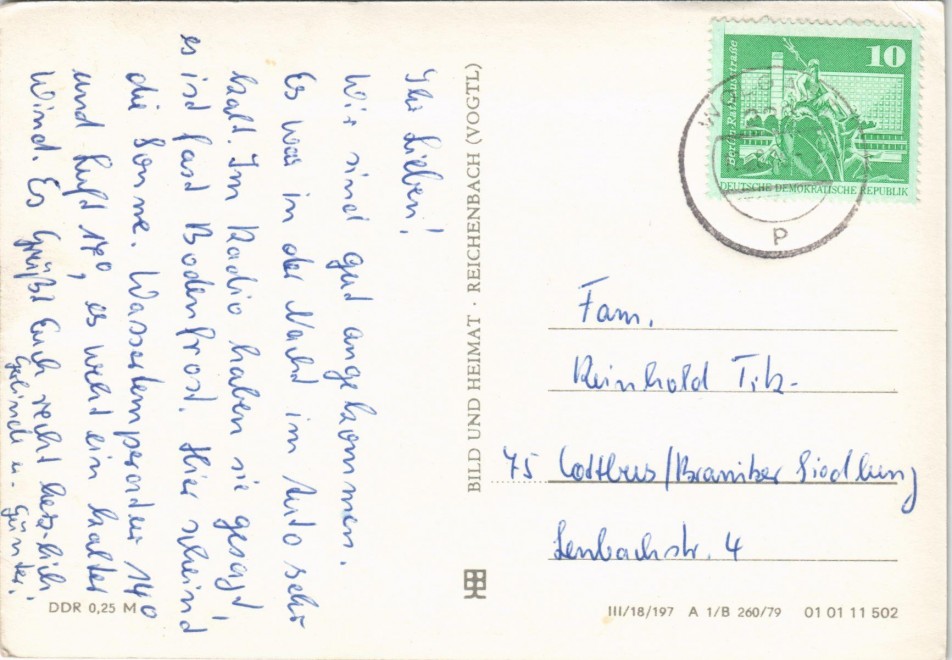 Ihr Lieben!
Wir sind gut angekommen.
Es war in der Nacht im Auto sehr
kalt. Im Radio haben sie gesagt
es ist fast Bodenfrost. Hier scheint
die Sonne. Wassertemperatur 14°
und Luft 17°, es weht ein kalter
Wind. Es grüßt Euch recht herzlich
u. Günter!
BILD UND HEIMAT · REICHENBACH (VOGTL)
10
Berlin, Rathausstraße
DEUTSCHE DEMOKRATISCHE REPUBLIK
P
Fam.
Reinhold Titz
75 Cottbus/Branitzer Siedlung
Lenbachstr. 4
DDR 0,25 M
III/18/197 A 1/B 260/79 01 01 11 502